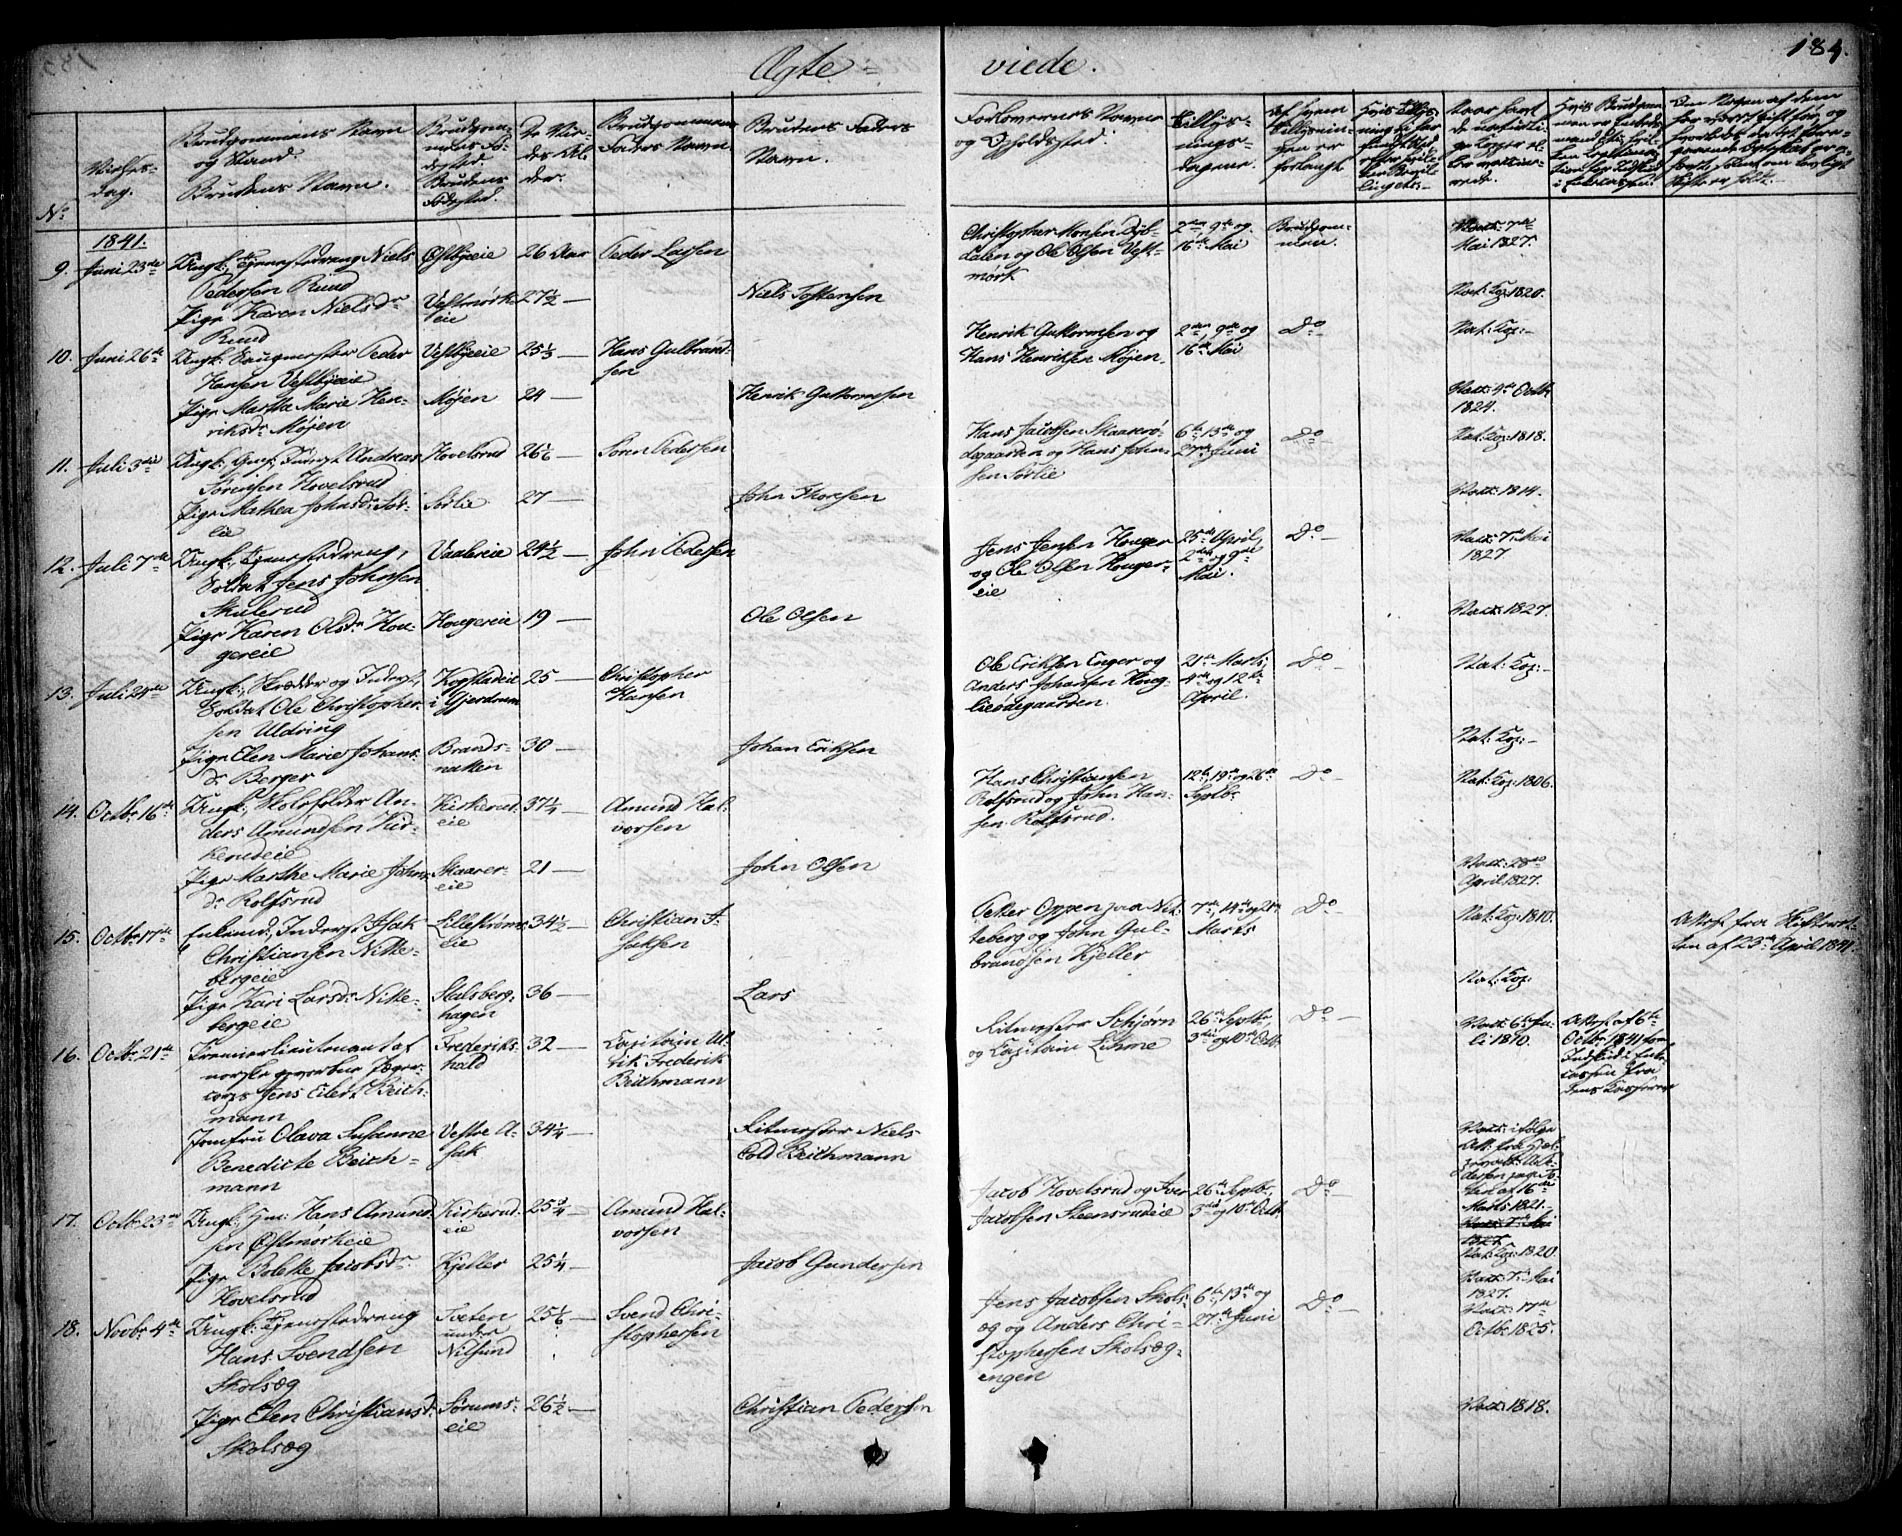 Ægte-
viede.
184.
No
Vielses-
dag.
Brudgommens Navn
og Stand.
Brudens Navn.
Brudgom-
mens Fø-
dested
Brudens
Fødested.
De Vie-
des Al-
der.
Brudgommens
Faders Navn.
Brudens Faders
Navn.
Forlovernes Navne
og Opholdssted.
Tillys-
nings-
dagene.
Af hvem
Tillysnin-
gen er
forlangt
1841.
9. Juni 23de
Ungk:, Tjenestedreng Niels
Pedersen Ruud
Østbyeie
26 Aar
Peder Larsen
Christopher Monsen Dyb-
dalen og Ole Olsen Vest-
mørk
2den, 9de og
16de Mai
Brudgom-
men.
Vacc: 7de
Mai 1827.
Pige Karen Nielsdr
Ruud
Vestmørk-
eie
27½ —
Niels Tostensen
Nat: Kop: 1820.
10. Juni 26de
Ungk: Saugmester Peder
Hansen Vestbyeie
Vestbyeie
25⅓ —
Hans Gulbrand-
sen
Henrik Guttormsen og
Hans Henriksen Møjen
2den, 9de og
16de Mai
Do
Nat: Kop: —
Pige Martha Marie Hen-
riksdr Møjen
Møjen
24 —
Henrik Guttormsen
Vacc: 9de Octbr
1824.
11. Juli 3die
Ungk: Gaaf: Inderst Andreas
Sørensen Hovelsrud
Hovelsrud
26⅙ —
Sören Pedersen
Hans Jacobsen Skaarerø-
degaarden og Hans John-
sen Sørlie
6te, 13de og
27de Juni
Do
Nat: Kop: 1818.
Pige Mathea Johnsdr Sør-
lie
Sørlie
27 —
John Thorsen
Vacc: 1814.
12. Juli 7de
Ungk:, Tjenestedreng,
Soldat Jens Johnsen
Skulerud
Vaalereie
24½ —
John Pedersen
Jens Jensen Houger
og Ole Olsen Houger-
eie
25de April,
2den og 9de
Mai.
Do —
Vacc: 7de Mai
1827
Pige Karen Olsdr Hou-
gereie
Hougereie
19 —
Ole Olsen
Vacc: 1827.
13. Juli 24de
Ungk:, Skrædder og Inderst,
Soldat Ole Christopher-
sen Uldring
Kogstadeie
i Gjerdrum
25 —
Christopher
Hansen
Ole Eriksen Enger og
Anders Johansen Houg-
lieødegaarden.
21de Marts,
4de og 12te
April.
Do
Nat: Kop: —
Pige Elen Marie Johans-
dr Berger
Brands-
natten
30 —
Johan Eriksen
Nat: Kop: —
14. Octbr 16de
Ungk:, Skoleholder An-
ders Amundsen Kir-
kerudeie
Kirkerud-
eie
37¼ —
Amund Hal-
vorsen
Hans Christiansen
Rolfsrud og John Han-
sen Rolfsrud.
12te, 19de og 26de
Septbr
Do —
Nat: Kop: 1806.
Pige Marthe Marie Johns-
dr Rolfsrud
Skaarer-
eie
21 —
John Olsen
Vacc: 28de
April 1827.
15. Octbr 17de
Enkemd, Inderst Isak
Christiansen Nitte-
bergeie
Lillestrøms-
eie
34½ —
Christian I-
saksen
Petter Oppen paa Nit-
teberg og John Gul-
brandsen Kjeller
7de, 14de og 21de
Marts
Do —
Nat: Kop: 1810.
Attest fra Skifteret-
ten af 23de April 1841.
Pige Kari Larsdr Nitte-
bergeie
Stalsberg-
hagen
36 —
Lars
Nat: Kop:
16. Octbr 21de
Premierlieutenant af
norske gevorbne Jæger-
corps Jens Eilert Beich-
mann
Frederiks-
hald
32 —
Capitain Ul-
rik Frederik
Beichmann
Ritmester Schjørn
og Capitain Lihme
26de Septbr,
3die og 10de Octbr
Do —
Vacc: 6te Ju-
li 1810.
Attest af 6te
Octbr 1841 om
Indskud i Enke-
cassen fra
dens Casserer
Jomfru Olava Susanne
Benedicte Beich-
mann
Vestre A-
sak
34¼ —
Ritmester Niels
Cold Beichmann
Vacc: ifølge
Att: fra
16de
Marts 1821.
17. Octbr 23de
Ungk:, Gm: Hans Amund-
sen Østmørkeie
Kirkerud-
eie
25¼ —
Amund Hal-
vorsen
Jacob Hovelsrud og Iver
Jacobsen Steensrudeie
26de Septbr,
3die og 10de Octbr
Do —
Vacc: 7de Mai
1827
Nat: Kop: 1820.
Pige Bolette Jacobsdr
Hovelsrud
Kjeller
25¼ —
Jacob Gundersen
Vacc: 7de Mai
1827.
18. Novbr 4de
Ungk: Tjenestedreng
Hans Svendsen
Skolsæg
Tveten
under
Nilsund
25⅙ —
Svend Chri-
stophersen
Jens Jacobsen Skols-
æg og Anders Chri-
stophersen Skolsæg-
engen
6te, 13de og
27de Juni
Do —
Vacc: 17de
Octbr 1825.
Pige Elen Christiansdr
Skolsæg
Sørums-
eie
26½ —
Christian Pedersen
Vacc: 1818.